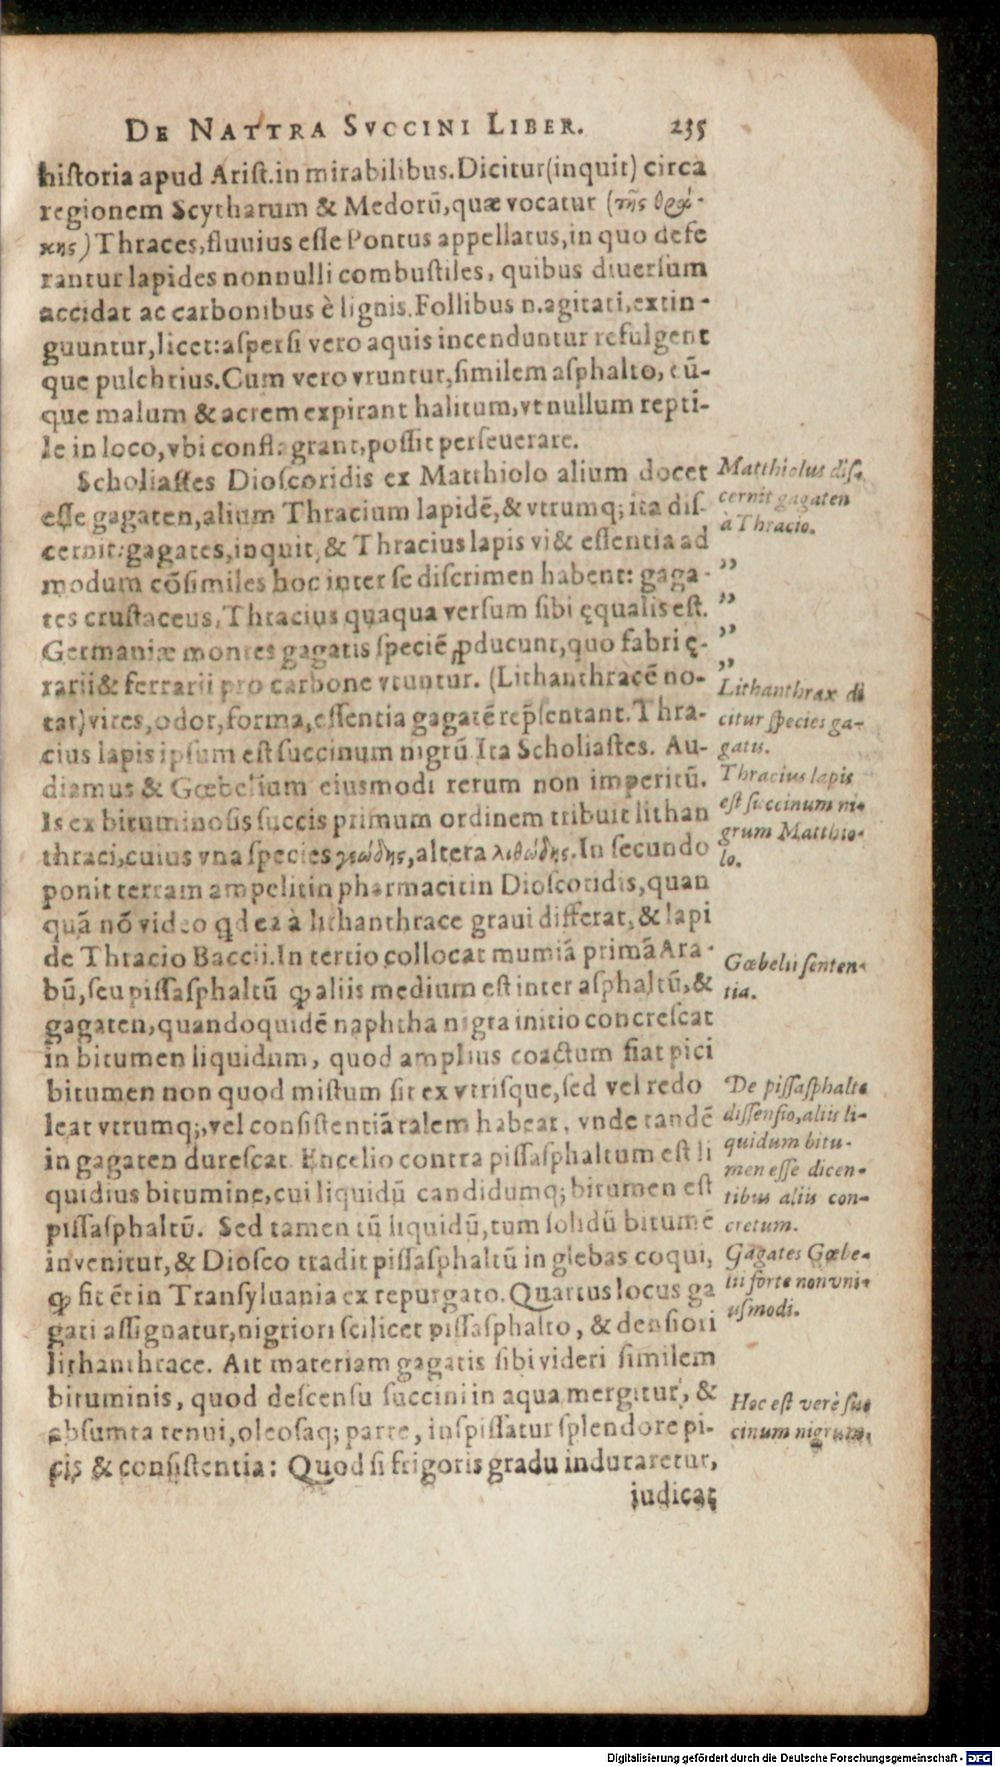 DE NATTRA SVCCINI LIBER. 235
historia apud Arist. in mirabilibus. Dicitur (inquit) circa
regionem Scytharum & Medorū, quæ vocatur (τῆς θρᾴ-
κης) Thraces, fluvius esse Pontus appellatus, in quo defe
rantur lapides nonnulli combustiles, quibus diuersum
accidat ac carbonibus è lignis. Follibus n. agitati, extin-
guuntur, licet: aspersi vero aquis incenduntur refulgent
que pulchrius. Cum vero vruntur, similem asphalto, tū-
que malum & acrem expirant halitum, vt nullum repti-
le in loco, vbi conflagrant, possit perseuerare.
Scholiastes Dioscoridis ex Matthiolo alium docet
esse gagaten, alium Thracium lapidē, & vtrumq; ita dis-
cernit: gagates, inquit, & Thracius lapis vi & essentia ad
modum cōsimiles hoc inter se discrimen habent: gaga-
tes crustaceus, Thracius quaqua versum sibi ęqualis est.
Germaniæ montes gagatis speciē ꝓducunt, quo fabri ę-
rarii & ferrarii pro carbone vtuntur. (Lithanthracē no-
tat) vires, odor, forma, essentia gagatē rep̄sentant. Thra-
cius lapis ipsum est succinum nigrū Ita Scholiastes. Au-
diamus & Gœbelium eiusmodi rerum non imperitū.
Is ex bituminosis succis primum ordinem tribuit lithan
thraci, cuius vna species γεώδης, altera λιθώδης. In secundo
ponit terram ampelitin pharmacitin Dioscoridis, quan
quā nō video qd ea à lithanthrace graui differat, & lapi
de Thracio Baccii. In tertio collocat mumiā primā Ara-
bū, seu pissasphaltū ꝙ aliis medium est inter asphaltū, &
gagaten, quandoquidē naphtha nigra initio concrescat
in bitumen liquidum, quod amplius coactum fiat pici
bitumen non quod mistum sit ex vtrisque, sed vel redo
leat vtrumq;, vel consistentiā talem habeat, vnde tandē
in gagaten durescat. Encelio contra pissasphaltum est li
quidius bitumine, cui liquidū candidumq; bitumen est
pissasphaltū. Sed tamen tū liquidū, tum solidū bitumē
invenitur, & Diosco tradit pissasphaltū in glebas coqui,
ꝙ fit ēt in Transyluania ex repurgato. Quartus locus ga
gati assignatur, nigriori scilicet pissasphalto, & densiori
lithanthrace. Ait materiam gagatis sibi videri similem
bituminis, quod descensu succini in aqua mergitur, &
absumta tenui, oleosaq; parte, inspissatur splendore pi-
cis & consistentia: Quod si frigoris gradu induraretur,
judicat
Matthiolus dis-
cernit gagaten
à Thracio.
”
”
”
”
Lithanthrax di
citur species ga-
gatis.
Thracius lapis
est succinum ni-
grum Matthio-
lo.
Gœbelii senten-
tia.
De pissasphalto
dissensio, aliis li-
quidum bitu-
men esse dicen-
tibus aliis con-
cretum.
Gagates Gœbe-
lii forte non vni-
usmodi.
Hoc est verè suc
cinum nigrum.
Digitalisierung gefördert durch die Deutsche Forschungsgemeinschaft - DFG